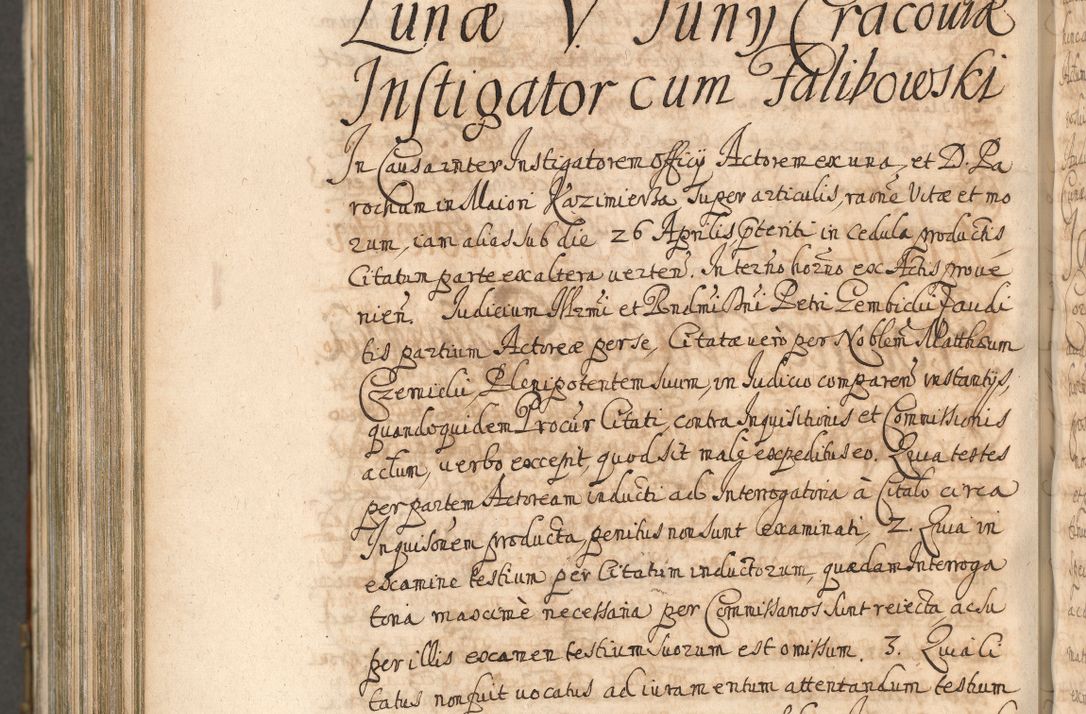 Lunæ V Junÿ Cracoviæ
Instigator cum Falibowski
In Causa inter Instigatorem officÿ Actorem ex una, et D. Pa
rochum in Maiori Kazimierza super articulis, raõne vitæ et mo
rum, iam alias sub die 26 Aprilis p̃teriti in cedula productis
Citatum parte ex altera verteñ. In terño horño ex Actis prove
nieñ. Iudicium Illr̃mi et Rndmi Dñi Petri Gembicki audi
tis partium Actoreæ per se, Citatæ vero per Nobleṁ Matthæum
Czernicki, Plenipotentem suum, in Iudicio compareñ instantÿs,
quandoquidem Procur̃ Citati, contra Inquisitionis et Commissionis
actum, verbo excepit, quod sit male expeditus eo. Quia testes
per partem Actoream inducti ad Interrogatoria à Citato circa
Inquisõnem producta, penitus non sunt examinati, 2. Quia in
examine testium per Citatum inductorum, quædam Interroga
toria maximè necessaria per Commissarios sunt reiecta, ac su
per illis examen testium suorum est omissum. 3. Quia Ci
tatus non fuit vocatus ad iuramentum attentandum testium